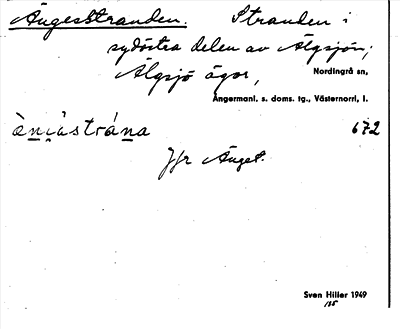 Ängesstranden. Stranden i
sydöstra delen av Älgsjön;
Älgsjö ägor,
Nordingrå sn,
Ångermanl. s. doms. tg., Västernorrl, l.
àn̲i̯àstrán̲a 672
Jfr Änget.
Sven Hiller 1949